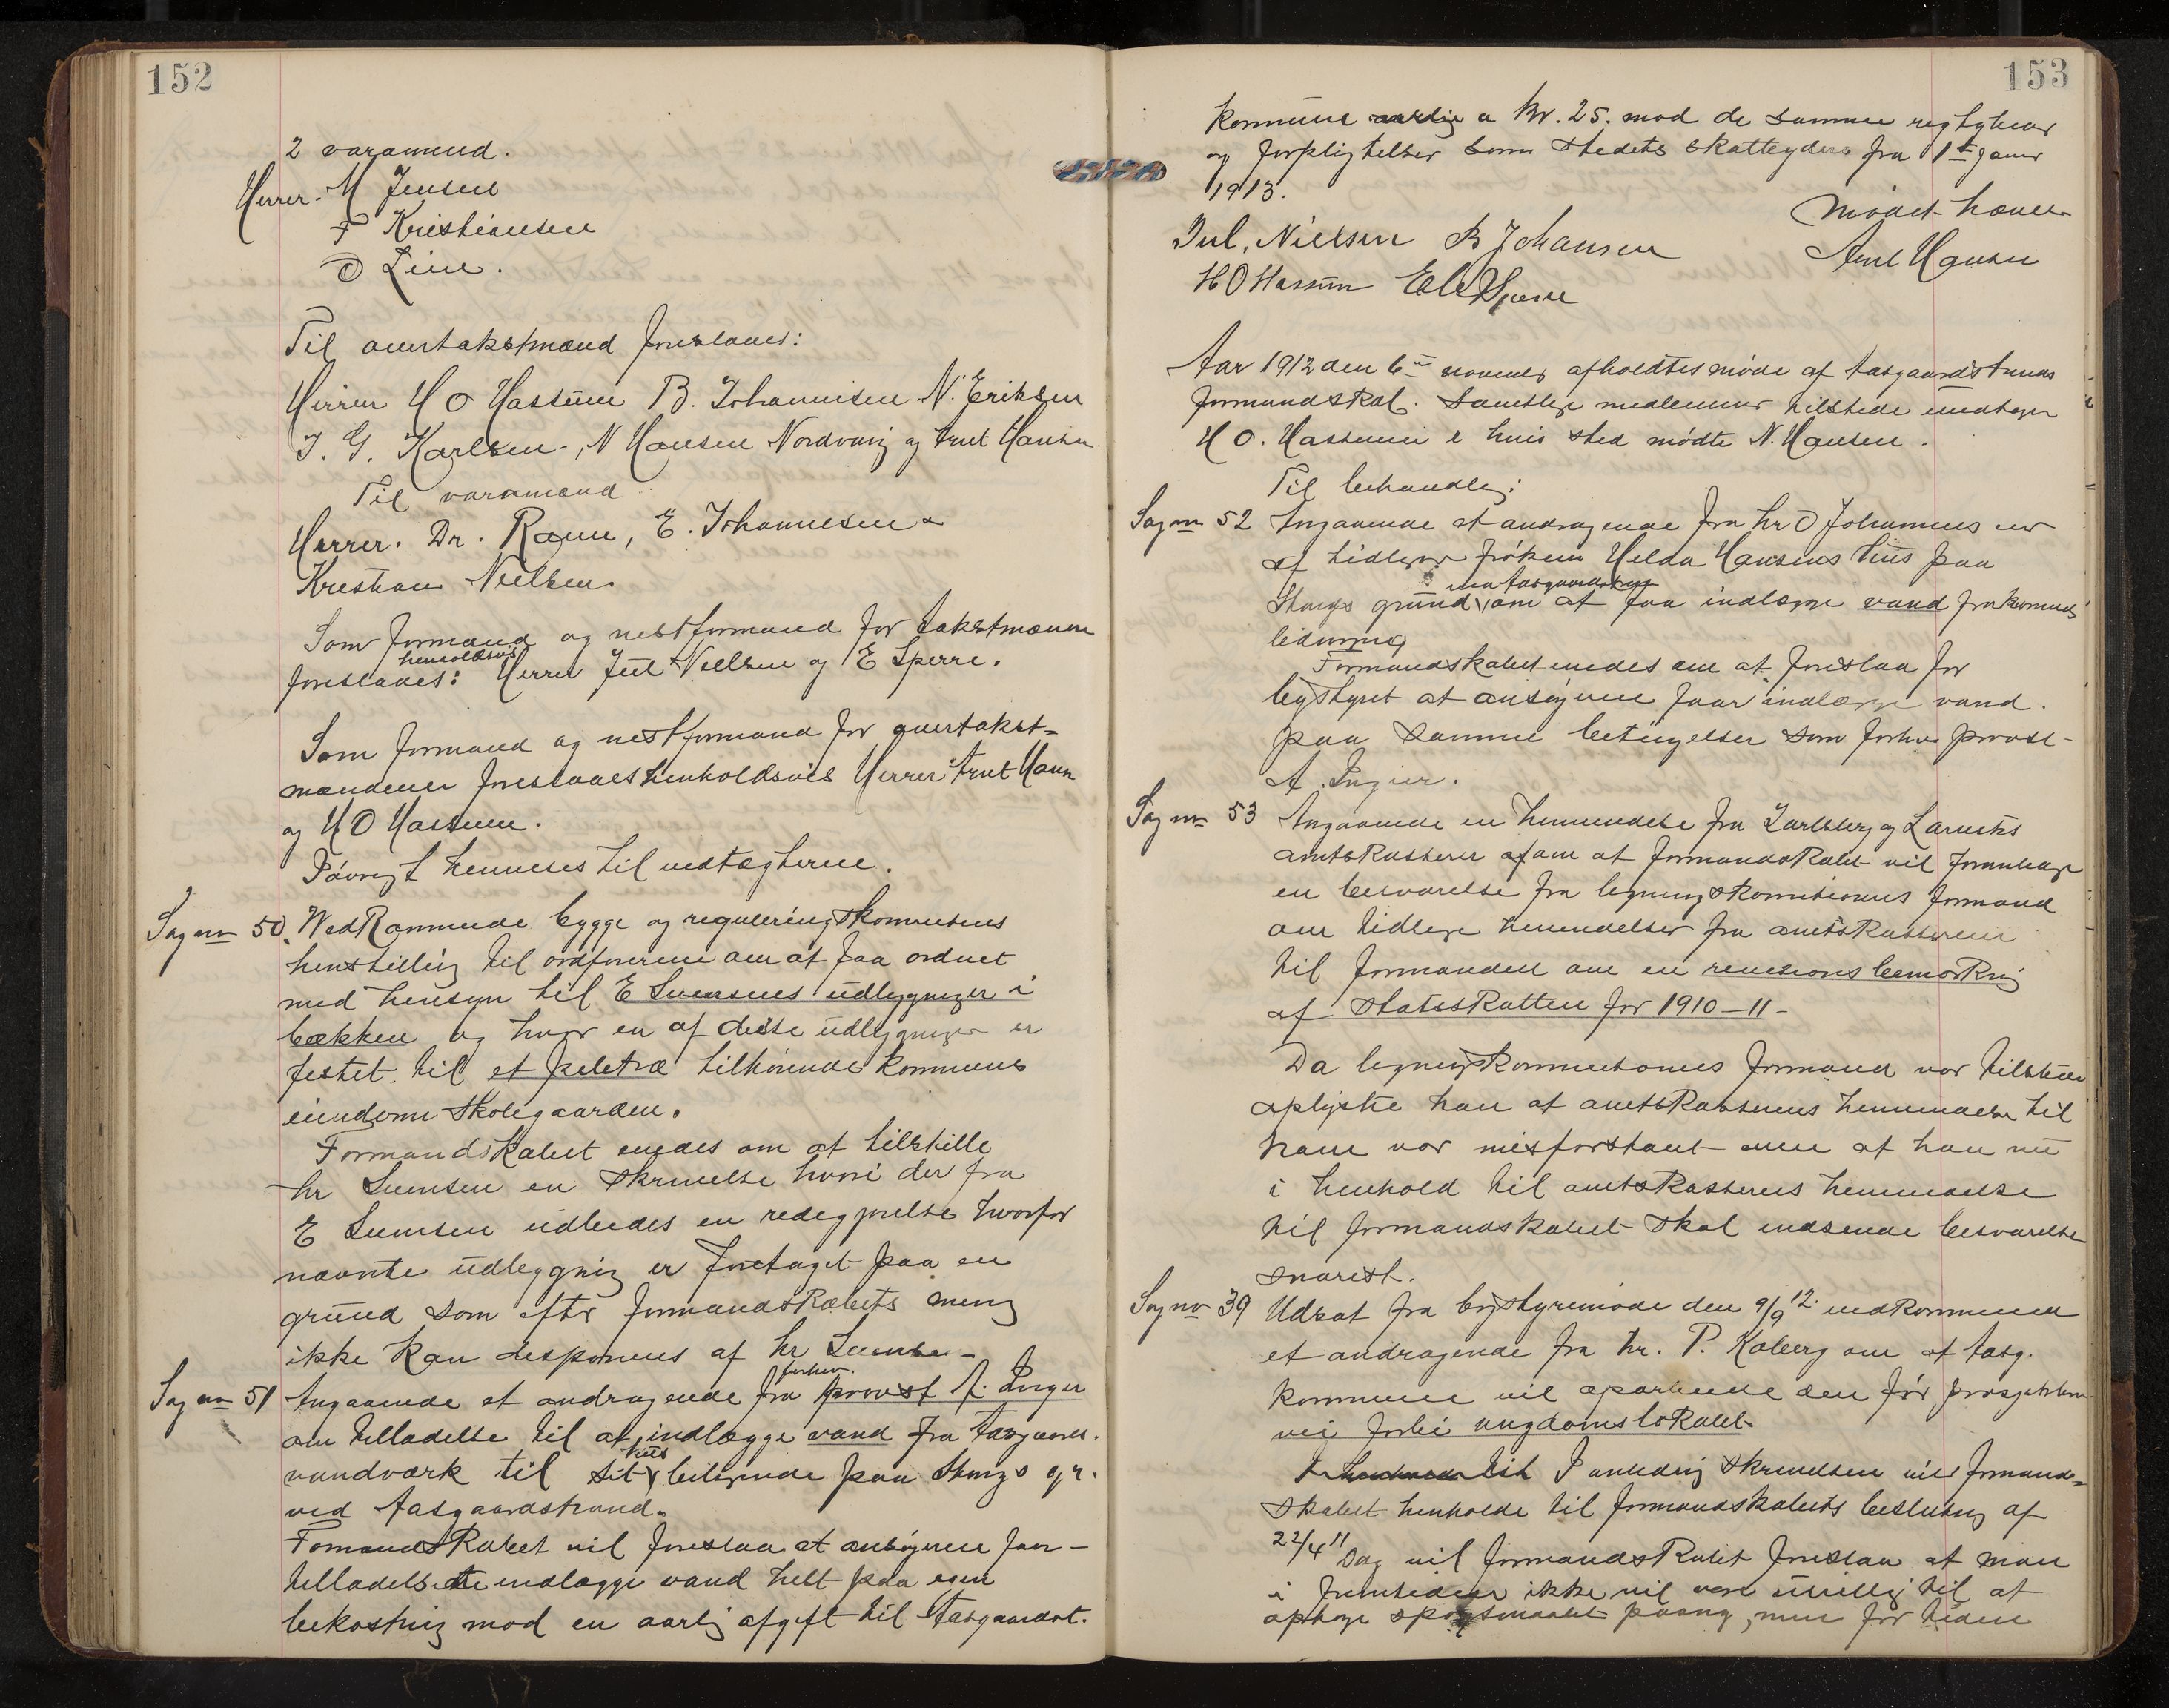 152
2 varamend.
Herrer. M Jensen
F Kristiansen
O Lien.
Til overtakstmænd foreslaaes:
Herrer H O Hassum B. Johannesen N. Eriksen
J. G. Karlsen, N Hansen Nordvang og Arnt Hansen
Til varamænd
Herrer. Dr. Ramm, E. Johannesen &
Krestian Nielsen.
Som formand og nestformand for takstmænene
foreslaaes: henholdsvis Herrer Jul Nielsen og E Sperre.
Som formand og nestformand for overtakst-
mændene foreslaaes henholdsvis Herrer Arnt Hansen
og H O Hassum.
Iøvrigt henvises til vedtægterne.
Sag no 50. Vedkommende bygge og reguleringskomitens
henstilling til ordføreren om at faa ordnet
med hensyn til E Svensens udbygninger i
bækken og hvor en af disse udbygninger er
festet til et piletræ tilhørende kommunens
eiendom Skolegaarden.
Formandskabet enedes om at tilstille
hr Svensen en skrivelse hvori der fra
E Svensen udbedes en redegjørelse hvorfor
nævnte udbygning er foretaget paa en
grund som efter formandskabets mening
ikke kan desponeres af hr Svensen
Sag no 51 Angaaende et andragende fra forhen. provst A. Ingier
om tilladelse til at indlægge vand fra Aasgaards.
vandværk til sit hus beligende paa Stangs gr.
ved Aasgaardstrand.
Formandskabet vil foreslaa at ansøgeren faar
tilladelse til at indlægge vand helt paa egen
bekostning mod en aarlig afgift til Aasgaardst.
153
kommune aarlig a Kr. 25. mod de samme regtigheder
og forpligtelser som stedets skatteydere fra 1ste januar
1913.
Mødet hævet
Jul. Nielsen B Johansen Arnt Hansen
H O Hassum E Sperre
Aar 1912 den 6te november afholdtes møde af Aasgaardstrands
formandskab. Samtlige medlemmer tilstede undtagen
H O. Hassum i hvis sted mødte N. Hansen.
Til behandling:
Sag no 52 Angaaende et andragende fra hr O Johannes eier
af tidligere frøken Helda Hansens hus paa
Stangs grund ved Aasgaardstrand om at faa indlægge vand fra kommunens
ledning
Formandskabet enedes om at foreslaa for
bystyret at ansøgeren faar indlægge vand
paa samme betingelser som forhen provst
A. Ingier.
Sag no 53 Angaaende en henvendelse fra Jarlsberg og Larviks
amtskasserer om at formandskabet vil foranledige
en besvarelse fra ligningskomitionens formand
om tidligere henvendelser fra amtskassereren
til formanden om en revisions bemærkning
af statsskatten for 1910-11-
Da ligningskommisionens formand var tilstede
oplyste han at amtskasserens henvendelse til
ham var misforstaaet men at han nu
i henhold til amtskasserens henvendelse
til formandskabet skal indsende besvarelse
snarest.
Sag no 39 Udsat fra bystyremøde den 9/9 12. vedkommende
et andragende fra hr. P. Kaberg om at Aasg.
kommune vil oparbeide den før prosjekterte
vei forbi ungdomslokalet.
I anledning skrivelsen vil formand-
skabet henholde til formandskabets beslutning af
22/4 11 Dog vil formandskabet foreslaa at man
i fremtiden ikke vil være uvillig til at
optage spørgsmaalet paany, men for tiden